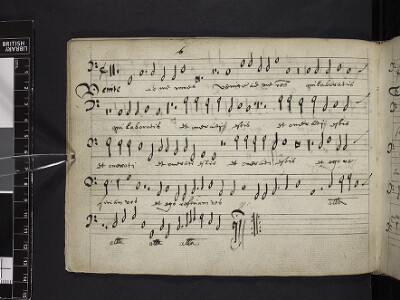 6
Venite ad me omnes Venite ad me oēs qui laboratis
qui laboratis et onerati estis et onerati estis
et onerati et onerati estis et onerati estis et ego re
ficiam vos et ego reficiam vos alla
alla alla alla
BRITISH LIBRARY